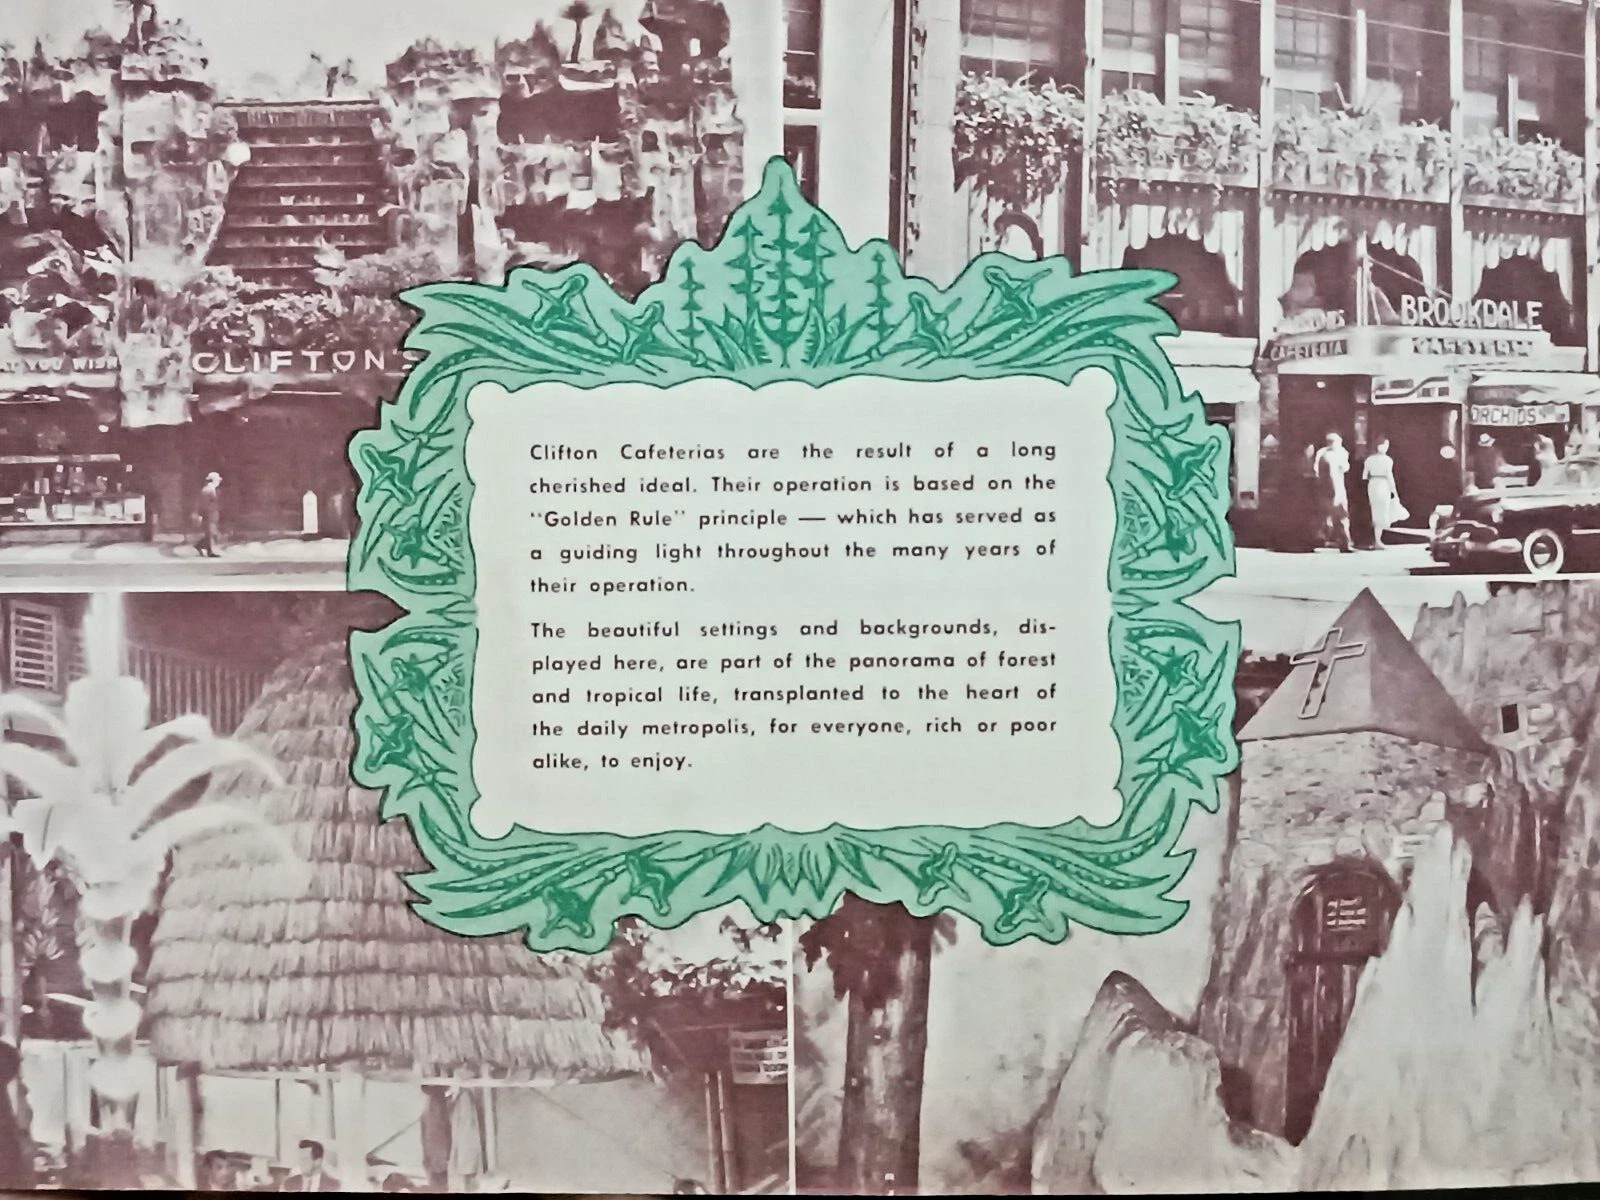 CLIFTON'S
BROOKDALE
CAFETERIA
ORCHIDS
Clifton Cafeterias are the result of a long
cherished ideal. Their operation is based on the
"Golden Rule" principle — which has served as
a guiding light throughout the many years of
their operation.
The beautiful settings and backgrounds, dis-
played here, are part of the panorama of forest
and tropical life, transplanted to the heart of
the daily metropolis, for everyone, rich or poor
alike, to enjoy.